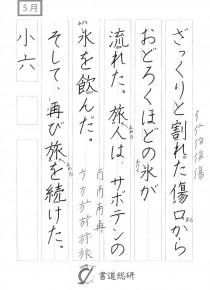 5月
ざっくりと割れた傷口から
おどろくほどの水が
流れた。旅人は、サボテンの
水を飲んだ。
そして、再び旅を続けた。
小六
書道総研